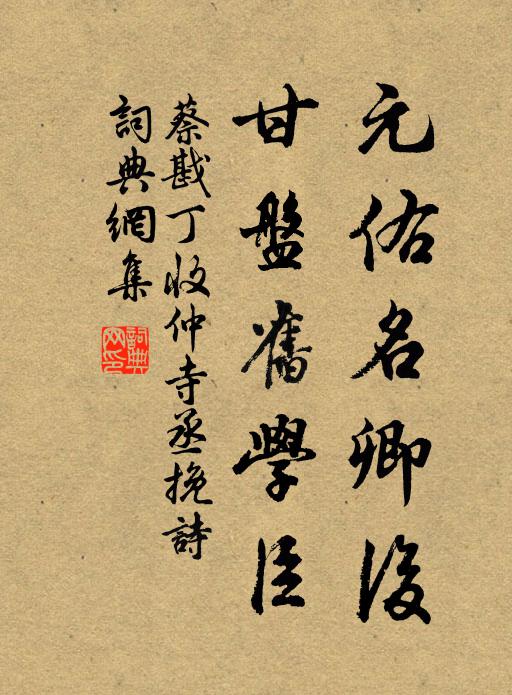 元佑名卿後
甘盤舊學臣
蔡戡丁收仲寺丞挽詩
詞典網集
詞典網印